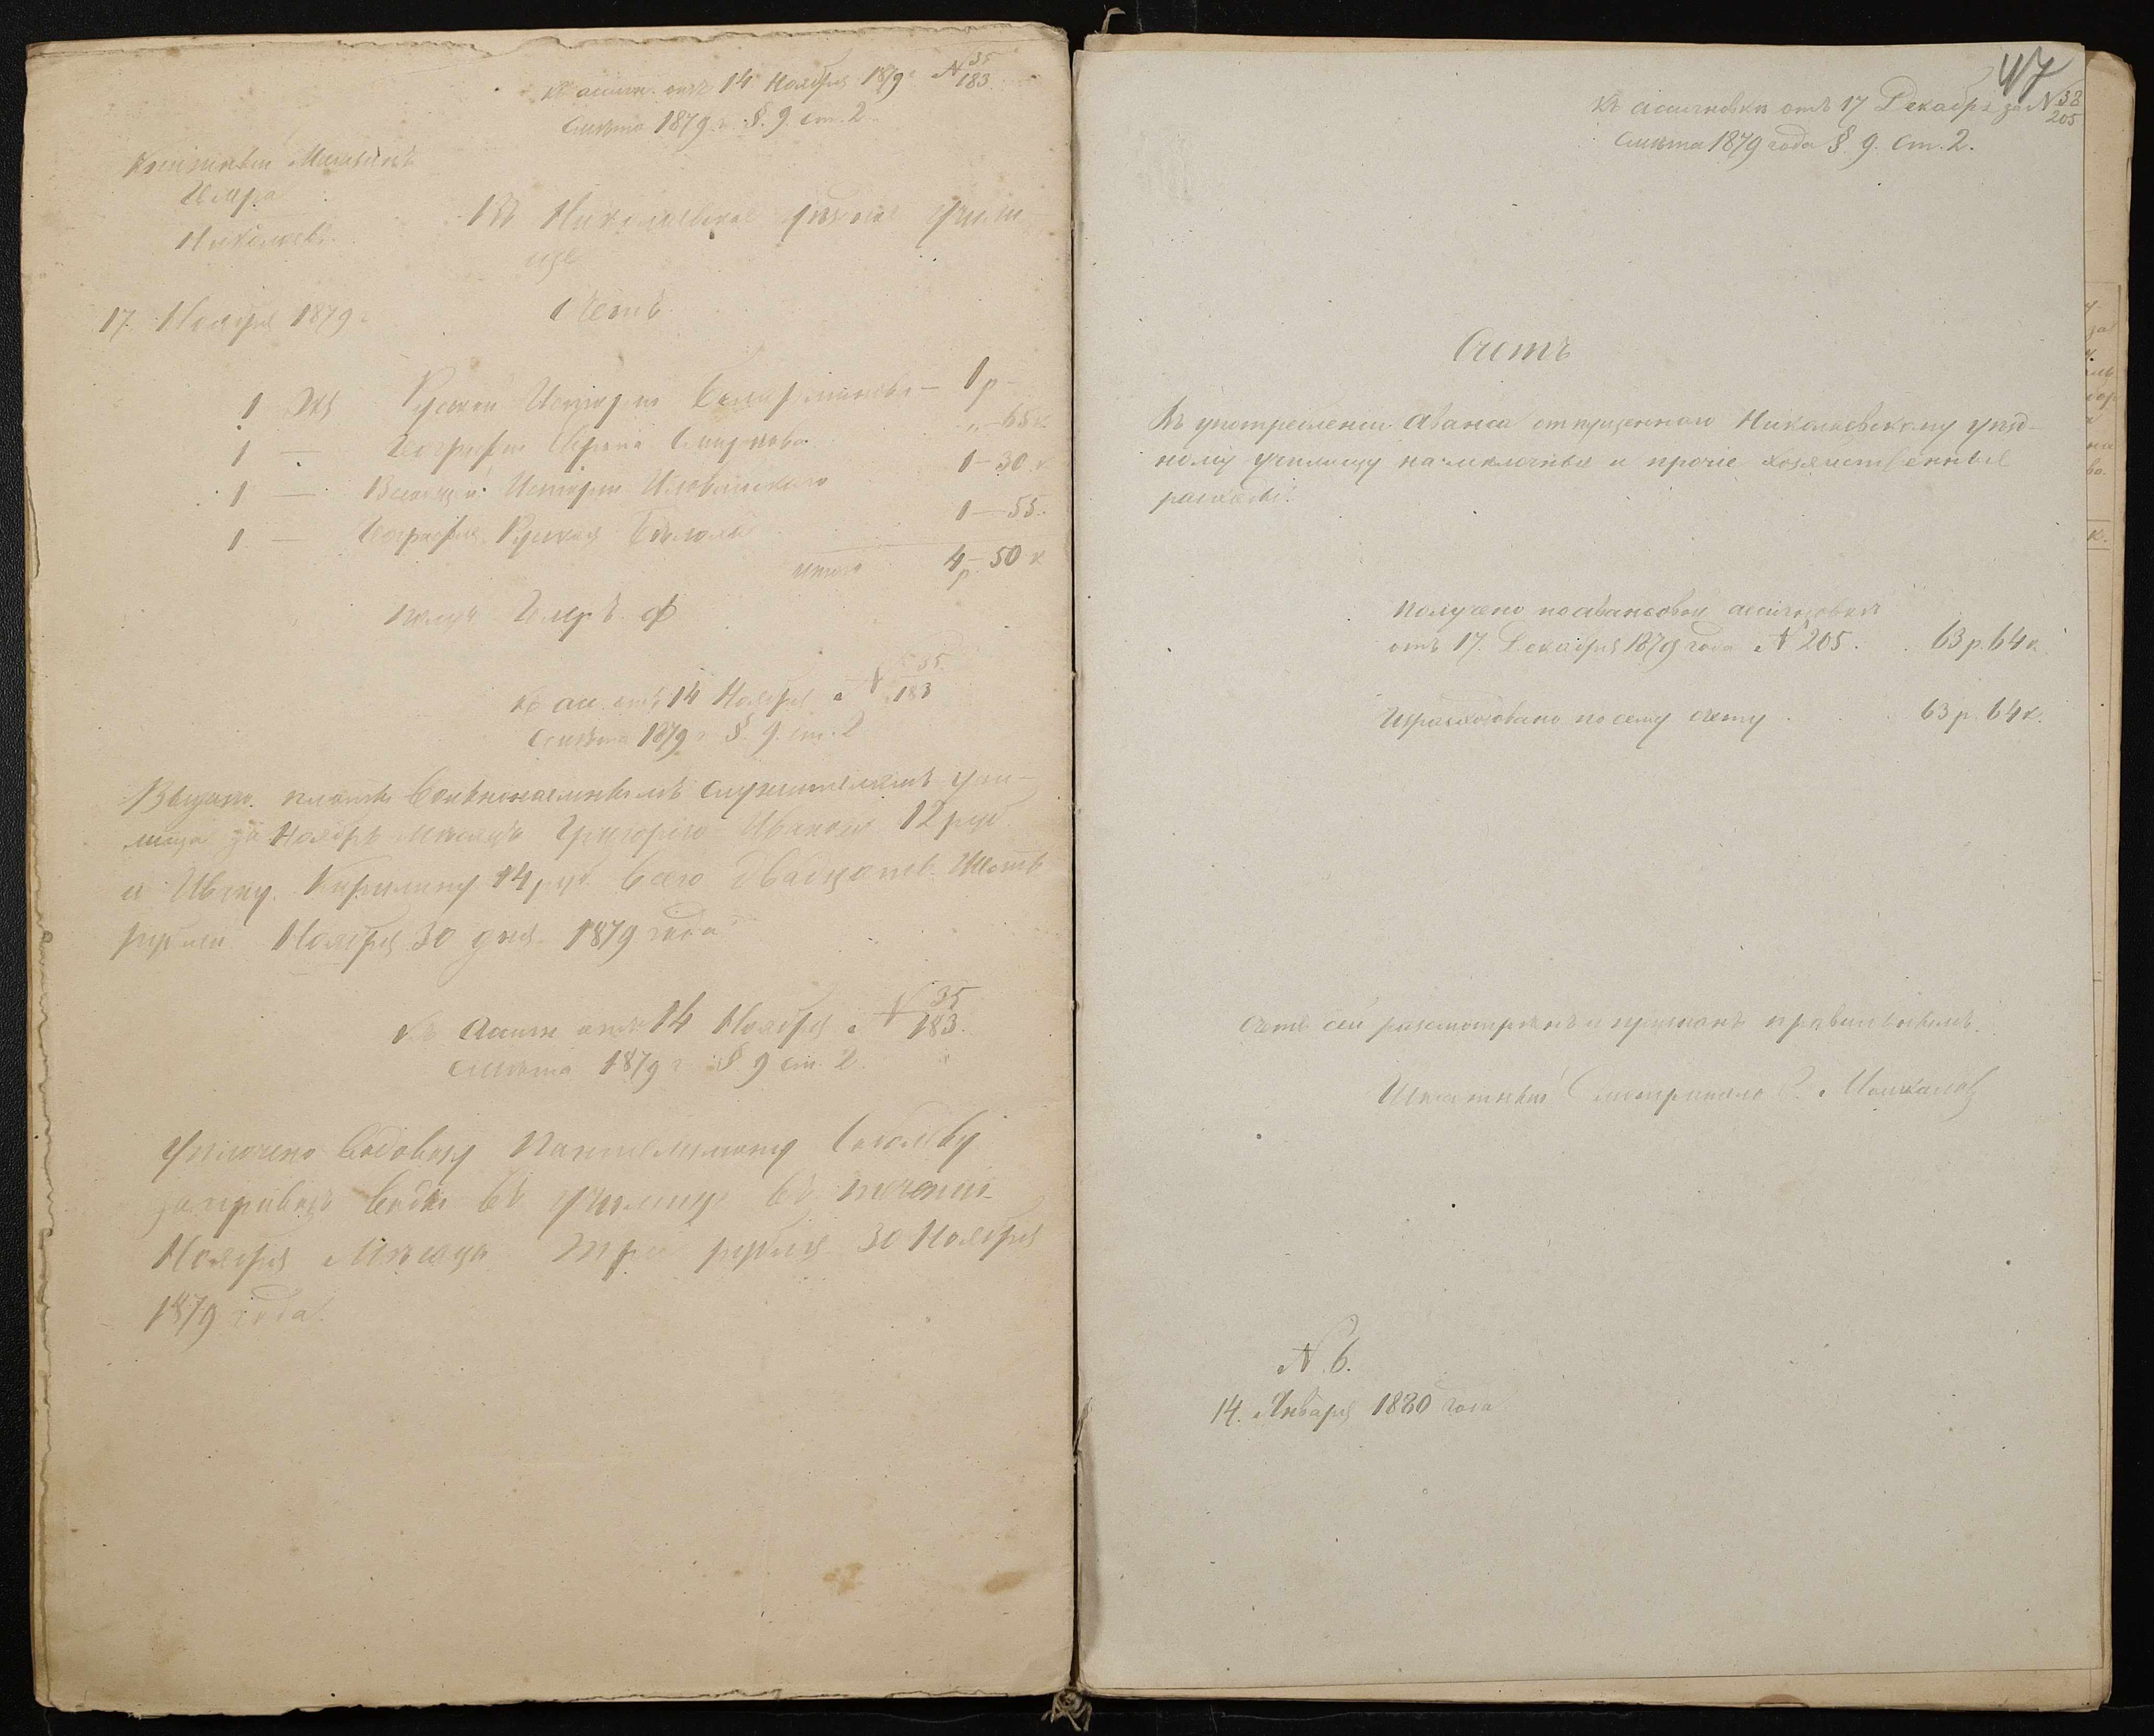 Къ ассигн. отъ 14 Ноября 1879 г. № 35/183
Смѣта 1879 г. §. 9. ст. 2
Книжный Магазинъ
Гемра
Николаевъ.
Въ Николаевское уѣздное учили
ще
17. Ноября 1879 г.
Счетъ
1 Экз Русской Исторіи 1 р
1 — Географіи Европа Смирнова „ — 65 к
1 — Всеобщей Исторіи Иловайскаго 1 — 30 к
1 — Географія Русская 1 — 55.
итого 4 р. 50 к
Получ
Къ асс. отъ 14 Ноября № 35/183
Смѣта 1879 г. §. 9. ст. 2
Выдано платы вольнонаемнымъ служителямъ учи-
лища за Ноябрь мѣсяцъ Григорію Иванову 12 руб.
и Ивану Кирилину 14 руб. Всего двадцать шесть
рублей. Ноября 30 дня 1879 года
Къ ассигн отъ 14 Ноября № 35/183.
Смѣта 1879 г. § 9 ст. 2.
Уплочено водовозу Соколову
за привозъ воды въ училище въ теченіи
Ноября Мѣсяца три рубля 30 Ноября
1879 года.
47
Къ ассигновкѣ отъ 17 Декабря за № 38/205
Смѣта 1879 года §. 9. Ст. 2.
Счетъ
Въ употребленіи аванса отпущеннаго Николаевскому уѣзд-
ному училищу на мелочные и прочіе хозяйственные
расходы.
Получено по авансовой ассигновкѣ
отъ 17. Декабря 1879 года № 205. 63 р. 64 к.
Израсходовано по сему счету 63 р. 64 к.
Счетъ сей разсмотрѣнъ и признанъ правильнымъ.
Штатный Смотритель
№ 6.
14. Января 1880 года